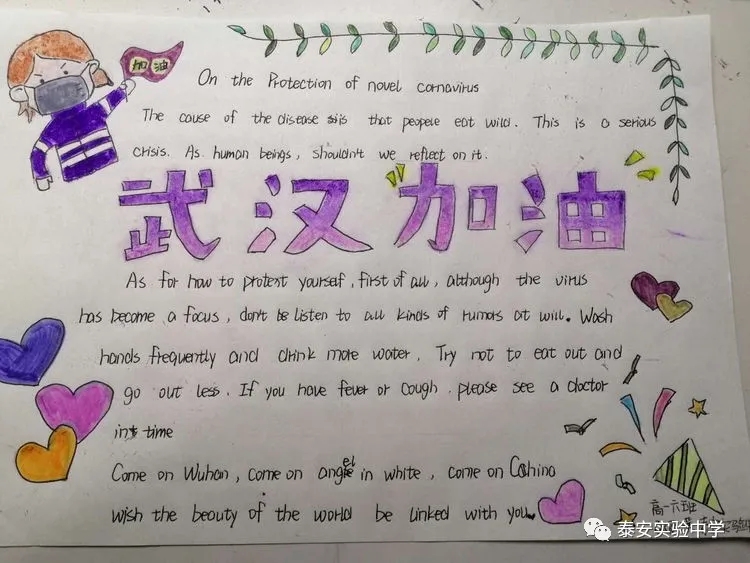 加油
On the Protection of novel cornavirus
The cause of the disease is that people eat wild. This is a serious
crisis. As human beings, shouldn't we reflect on it.
武汉加油
As for how to protest yourself, first of all, although the virus
has become a focus, don't be listen to all kinds of rumors at will. Wash
hands frequently and drink more water. Try not to eat out and
go out less. If you have fever or cough. please see a doctor
in time
Come on Wuhan, come on angel in white, come on China
wish the beauty of the world be linked with you.
高一六班
泰安实验中学